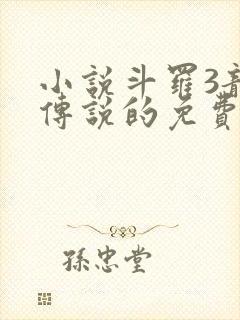 小說斗羅3
傳說的免費
孫忠堂